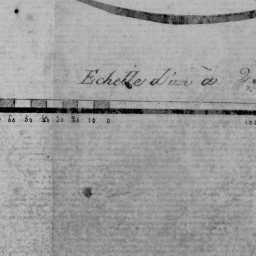 Echelle d'un à
60 50 40 30 20 10 0